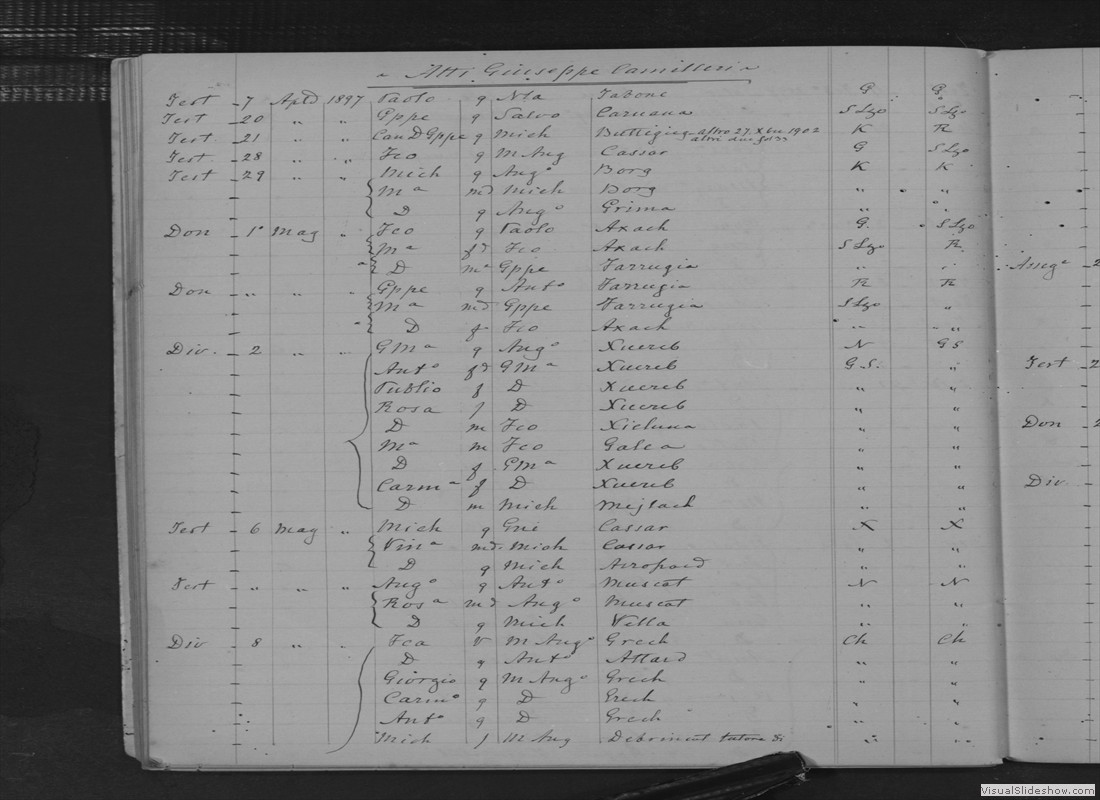 Atti Giuseppe Camilleri
Test 7 April 1897 Paolo q Nla Tabone G G
Test 20 " " Gppe q Salvo Caruana S Lzo S Lzo
Test 21 " " Can D Gppe q Mich Buttigieg altro 27 Xbre 1902 K K
altri due fol
Test 28 " " Fco q M Ang Cassar G S Lzo
Test 29 " " Mich q Ango Borg K K
Ma md Mich Borg " "
D q Ango Grima " "
Don 1o Mag " Fco q Paolo Axach G. S Lzo
Ma fd Fco Axach S Lzo K
D ma Gppe Farrugia " "
Don " " " Gppe q Anto Farrugia K K
Ma md Gppe Farrugia S Lzo "
D f Fco Axach " "
Div. 2 " " GMa q Ango Xuereb N GS
Anto fd GMa Xuereb G.S. "
Publio f D Xuereb " "
Rosa f D Xuereb " "
D m Fco Xicluna " "
Ma m Fco Galea " "
D f GMa Xuereb " "
Carma f D Xuereb " "
D m Mich Mejlach " "
Test 6 Mag " Mich q Gni Cassar X X
Vina md. Mich Cassar " "
D q Mich " "
Test " " " Ango q Anto Muscat N N
Rosa md Ango Muscat " "
D q Mich Vella " "
Div 8 " " Fca V M Ango Grech Ch Ch
D q Anto Attard " "
Giorgio q M Ango Grech " "
Carmo q D Grech " "
Anto q D Grech " "
Mich f M Ang Debrincat tutore di " "
Assega 2
Test 2
Don 2
Div.
VisualSlideshow.com